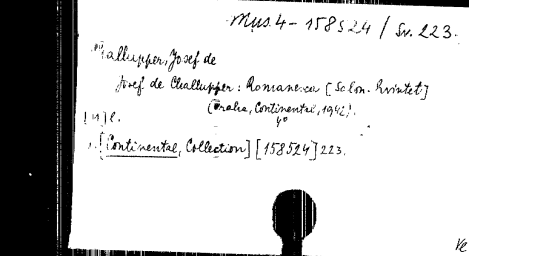 Mus. 4 - 158524 / Sv. 223.
Challupper, Josef de
Josef de Challupper: Romanesca [Salon. Kvintet]
(Praha, Continental, 1942).
4°
[Continental, Collection] [158524] 223.